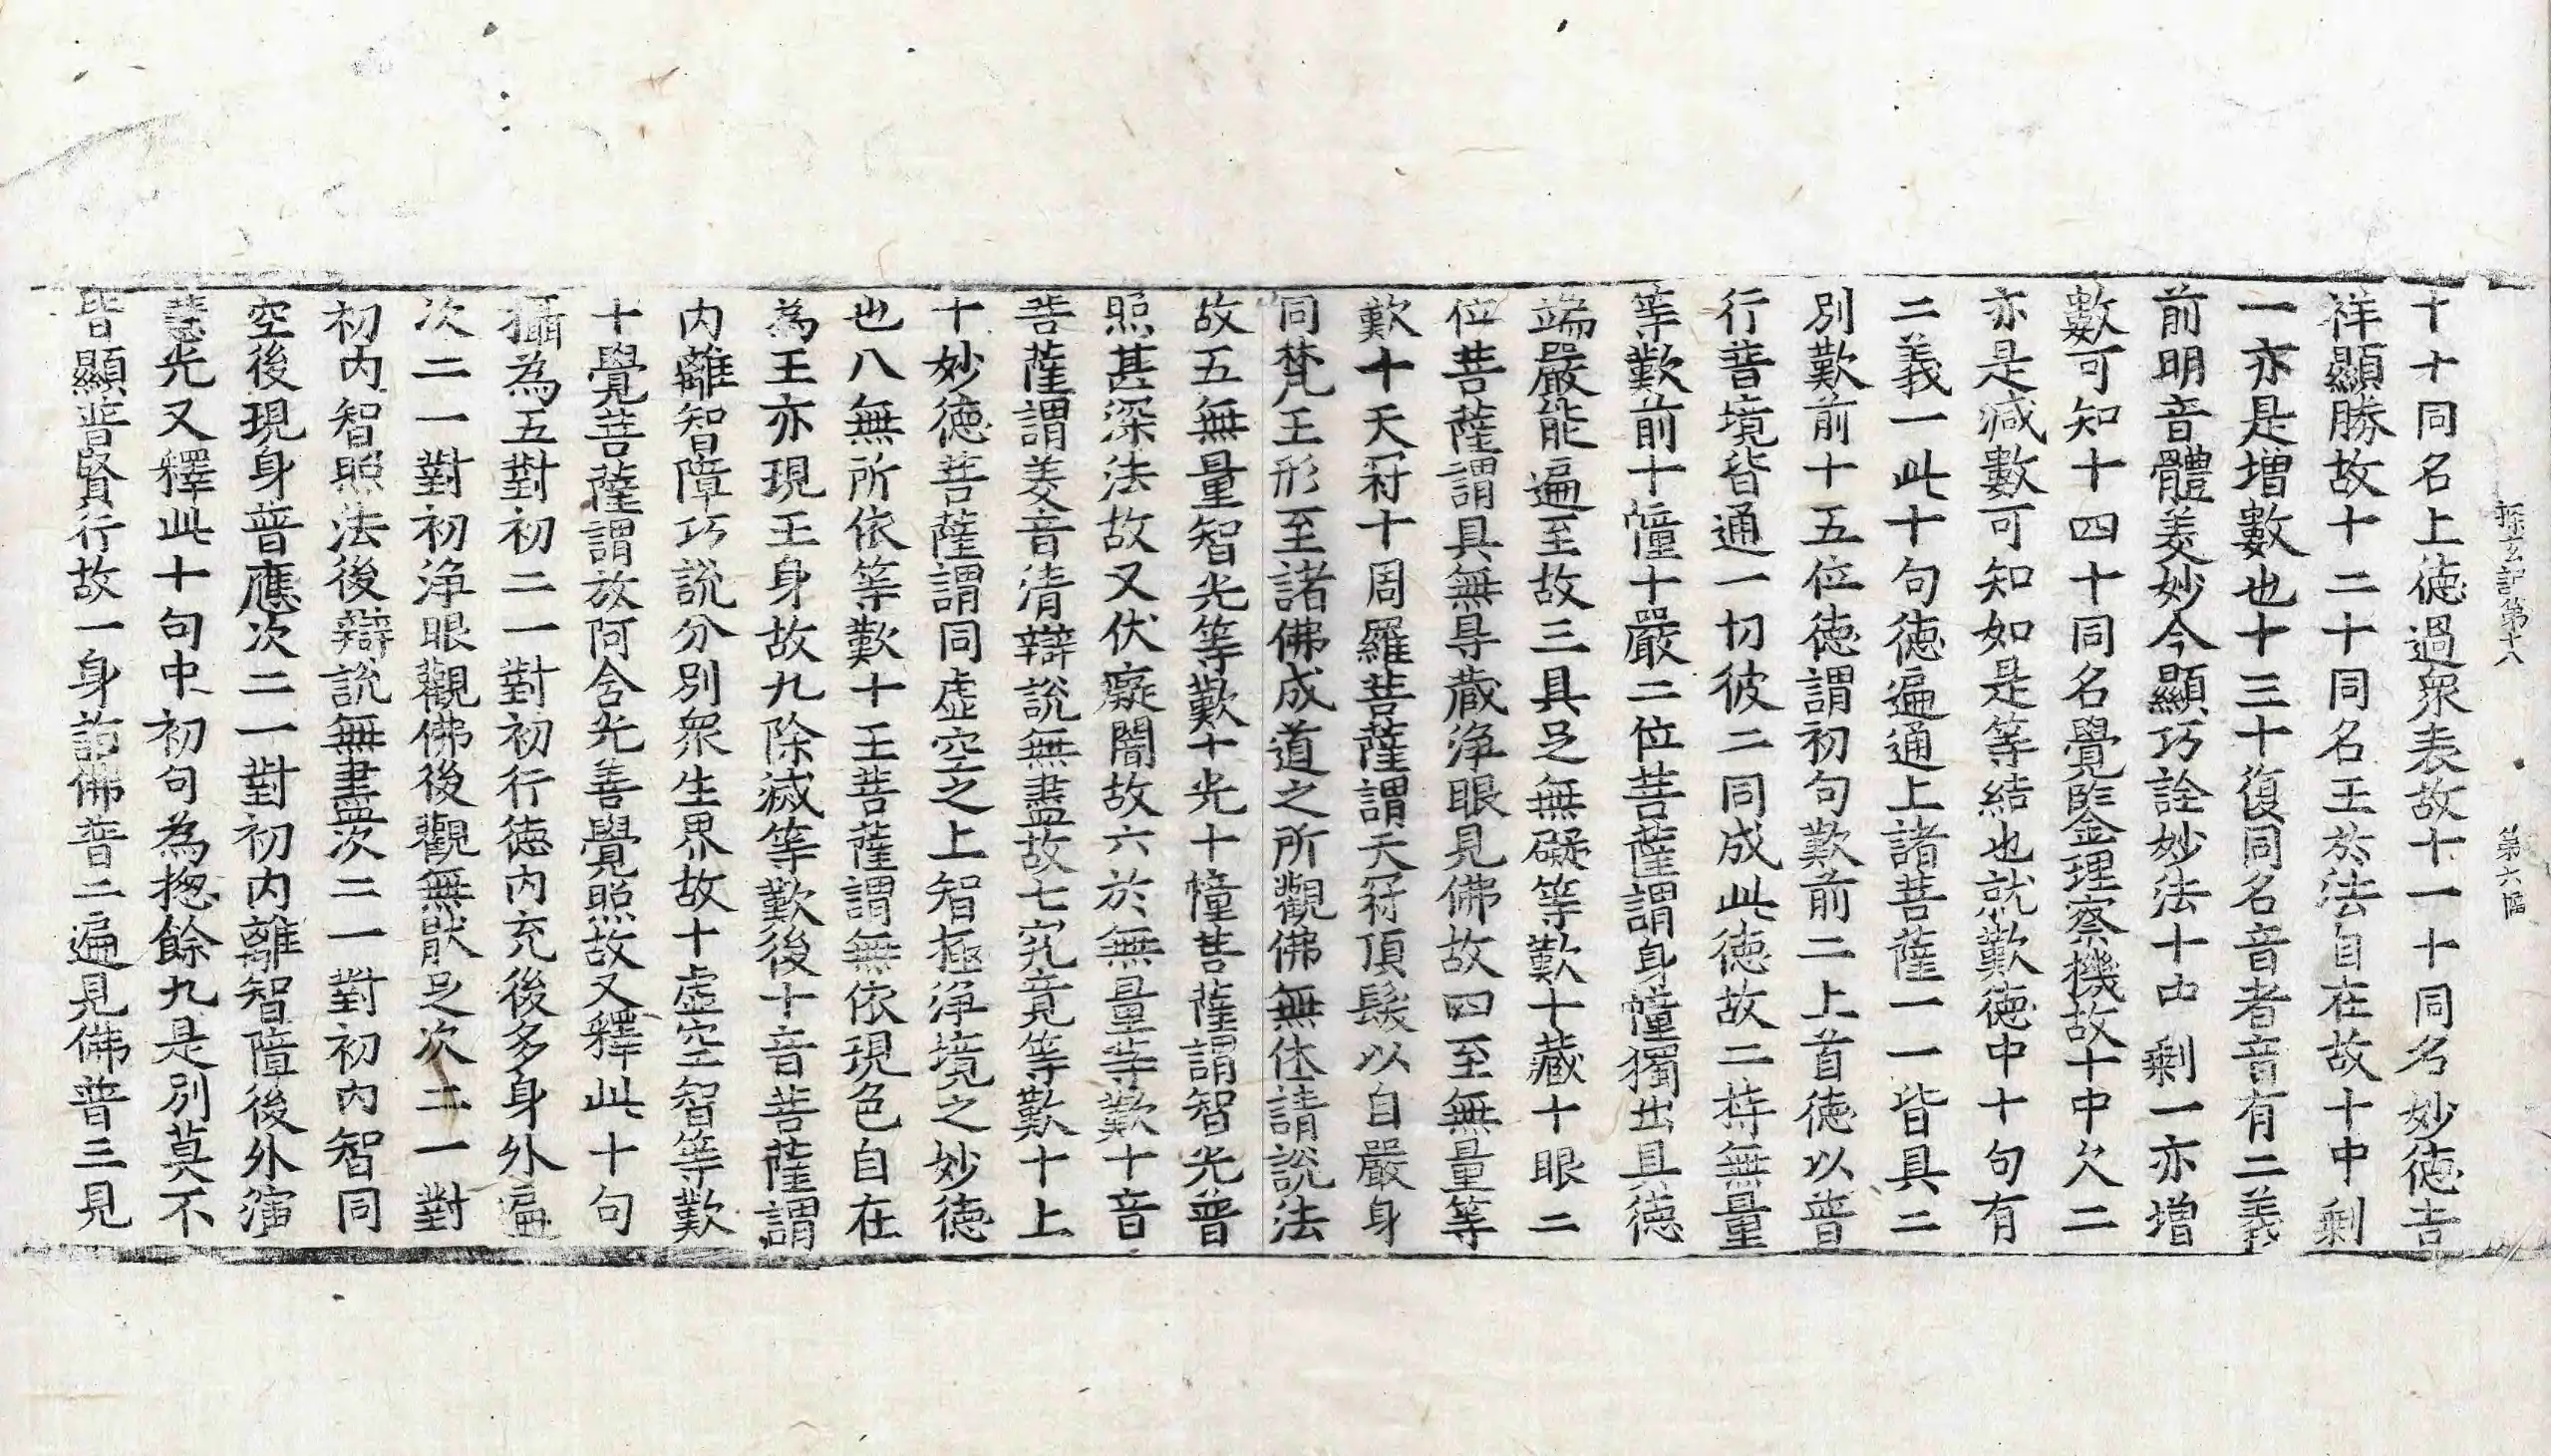 探玄記第十八 第六幅
十十同名上徳過衆表故十一十同名妙徳吉
祥顯勝故十二十同名王於法自在故十中剩
一亦是增數也十三十復同名音者音有二義
前明音體美妙今顯巧詮妙法十中剩一亦增
數可知十四十同名覺監理察機故十中欠二
亦是減數可知如是等結也就歎徳中十句有
二義一此十句徳遍通上諸菩薩一一皆具二
別歎前十五位徳謂初句歎前二上首徳以普
行普境皆通一切彼二同成此徳故二持無量
等歎前十幢十嚴二位菩薩謂身幢獨出具徳
端嚴能遍至故三具足無礙等歎十藏十眼二
位菩薩謂具無㝵藏淨眼見佛故四至無量等
歎十天冠十周羅菩薩謂天冠頂髮以自嚴身
同梵王形至諸佛成道之所觀佛無休請說法
故五無量智光等歎十光十幢菩薩謂智光普
照甚深法故又伏癡闇故六於無量等歎十音
菩薩謂美音清辯說無盡故七究竟等歎十上
十妙徳菩薩謂同虛空之上智極淨境之妙徳
也八無所依等歎十王菩薩謂無依現色自在
為王亦現王身故九除滅等歎後十音菩薩謂
內離智障巧說分別衆生界故十虛空智等歎
十覺菩薩謂放阿含光善覺照故又釋此十句
攝為五對初二一對初行徳內充後多身外遍
次二一對初淨眼觀佛後觀無猒足次二一對
初內智照法後辯說無盡次二一對初內智同
空後現身普應次二一對初內離智障後外演
慧光又釋此十句中初句為揔餘九是別莫不
皆顯普賢行故一身詣佛普二遍見佛普三見